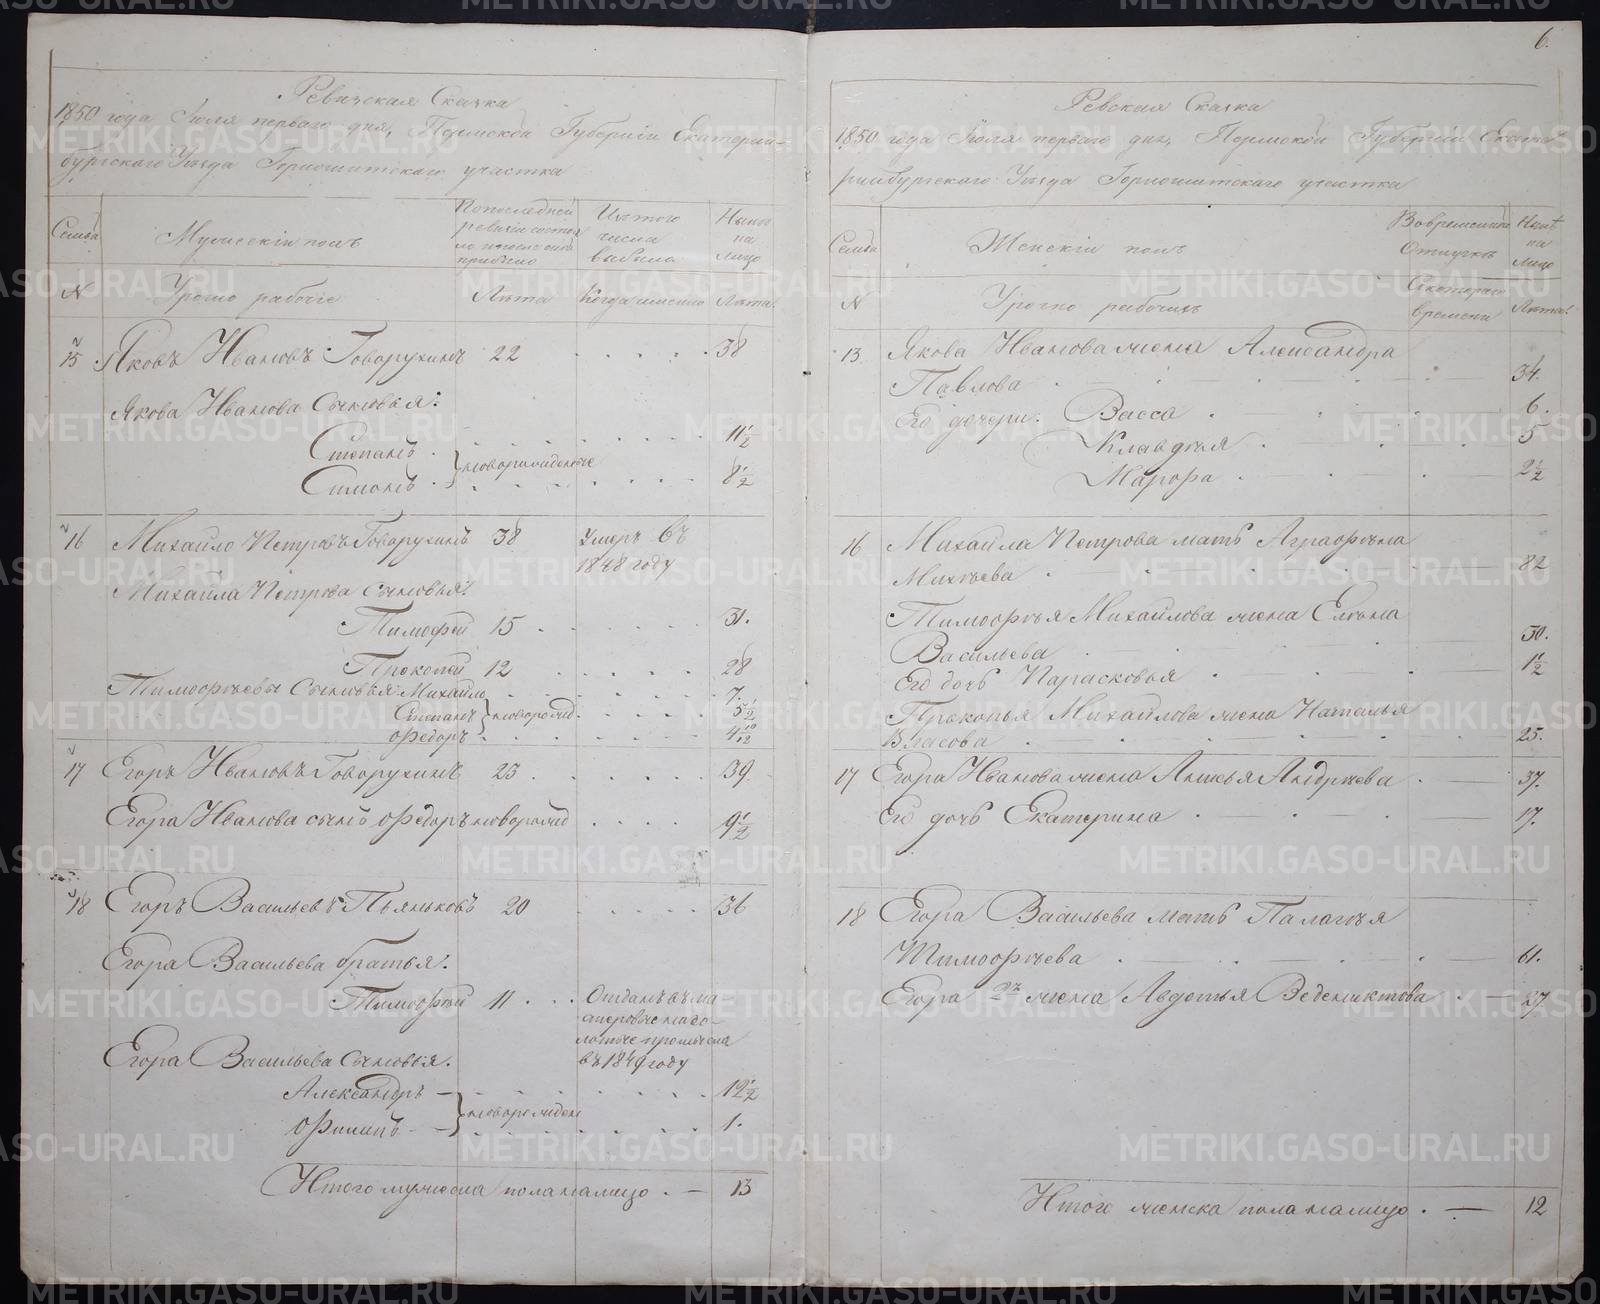 Ревизская Сказка
1850 года Іюля перваго дня, Пермской Губерніи Екатерин-
бургскаго Уѣзда Горнощитскаго участка
Семьи
Мужескій полъ
Попоследней ревизіи состояло и после оной прибыло
Изъ того числа выбыло
Ныне на лицо
N
Урочно рабочіе
Лѣта
Когда именно
Лѣта
15 Яковъ Ивановъ Говорухинъ 22 38
Якова Иванова Сыновья:
Степанъ 11 1/2
новорожденные
Симонъ 8 1/2
16 Михайло Петровъ Говорухинъ 38 Умеръ въ
1848 году
Михайла Петрова сыновья:
Тимофей 15 31.
Прокопей 12 28
Тимоофѣевы Сыновья: Михайло 7.
Степанъ новорожд. 5 1/2
Ѳедоръ 4 10/12
17 Егоръ Ивановъ Говорухинъ 23 39
Егора Иванова сынъ Ѳедоръ новорожд 9 1/2
18 Егоръ Васильевъ Пьяньковъ 20 36
Егора Васильева братья:
Тимоофей 11 Отданъ въ ма
стеровые на зо-
лотые промысла
въ 1849 году
Егора Васильева Сыновья.
Александръ 12 1/2
новорожден
Филипъ 1.
Итого мужеска пола налицо. — 13
6.
Ревская Сказка
1850 года Іюля перваго дня, Пермской Губерніи Екате
ринбургскаго Уѣзда Горнощитскаго участка
Семьи
Женскій полъ
Вовременной Отлучкѣ
Ныне на лицо
N
Урочно рабочихъ
Скотораго времени
Лѣта.
13 Якова Иванова жена Александра
Павлова 34.
Его дочери: Васса 6.
Клавдия 5
Марѳа 2 1/2
16 Михайла Петрова мать Аграфѣна
Михѣева 82
Тимоофѣя Михайлова жена Елѣна
Васильева 30.
Его дочь Парасковья 1 1/2
Прокопья Михайлова жена Наталья
Власова 25.
17 Егора Иванова жена Анисья Андрѣева 37.
Его дочь Екатерина 17.
18 Егора Васильева мать Палагѣя
Тимоофѣева 61.
Егора 2я жена Авдотья Веденихтова 27.
Итого женска пола налицо. — 12
METRIKI.GASO-URAL.RU